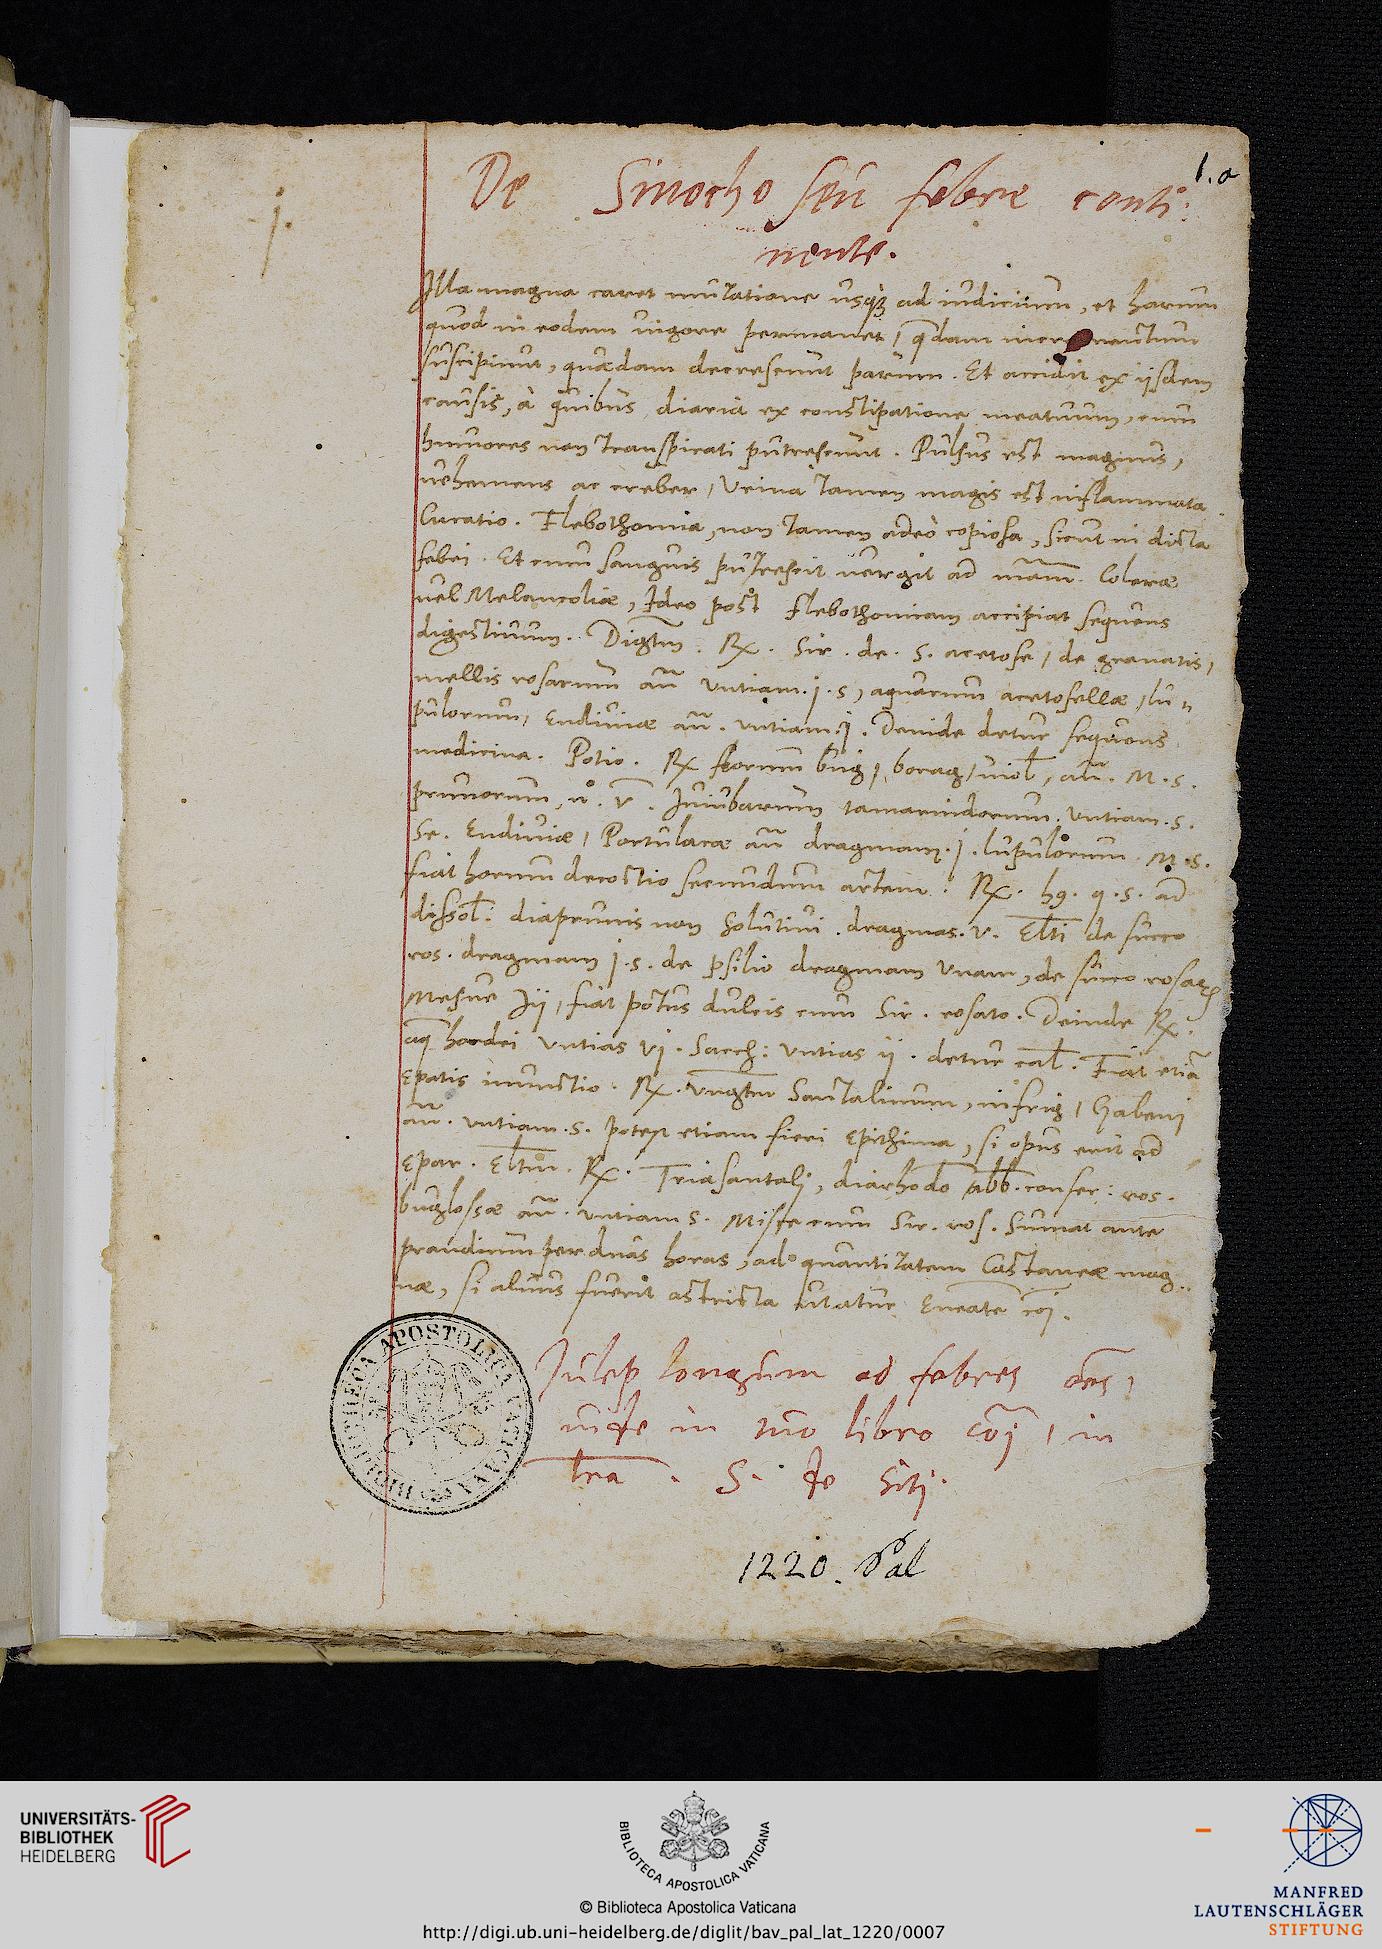 1.a
De Sinocho seu febre conti:
nente.
1.
Illa magna caret mutatione usq₃ ad iudicium, et harum
quod in eodem vigore permanet, q̄dam incrementum
suscipiunt, quædam decrescunt parum. Et accidit ex ijsdem
causis, à quibus diaria ex constipatione meatuum, cum
humores non transpirati putrescunt. Pulsus est magnus,
vehemens ac creber, Urina tamen magis est inflammata.
Curatio. Flebothomia, non tamen adeò copiosa, sicut in dicta
febri. Et cum sanguis putrescit vergit ad nām Coleræ
vel Melancoliæ, Ideo post flebothomiam accipiat sequens
digestivum. Digtm̄. ℞. Sir. de. S. acetose, de granatis,
mellis rosarum añ untiam. j. s, aquarum acetosellæ, lu
pulorum, Endiviæ añ. untiam. j. Deinde detur sequens
medicina. Potio. ℞ florum bug, borag, viol, añ. M. s.
prunorum, n°. v. Iuiubarum tamarindorum. untiam. s.
Se. Endiviæ, Portulacæ añ dragmam. j. lupulorum. M. s.
fiat horum decoctio secundum artem. ℞. h9. q. s. ad
dissol: diaprunis non solutivi. dragmas. v. El̄ti de succo
ros. dragmam j. s. de psilio dragmam unam, de succo rosarꝝ
Mesue ij, fiat potus dulcis cum Sir. rosato. Deinde ℞.
aq̄ hordei untias vj. Sacch: untias ij. detur cal. Fiat etiā
epatis inunctio. ℞. Ungtm̄ Santalinum, infrig, Galeni
añ. untiam. s. potest etiam fieri Epithima, si opus erit ad
Epar. El̄tm. ℞. Triasantalj, diarhodo abb. conser: ros.
buglossæ añ. untiam s. Misce cum Sir. ros. Sumat ante
prandium per duas horas, ad quantitatem Castaneæ mag
næ, si alvus fuerit astricta utatur Eneate cōj.
Iulep longum ad febres oēs,
in libro cōj, in
lrā. S. de Siti.
1220. Pal
BIBLIOTHECA APOSTOLICA VATICANA
UNIVERSITÄTS-
BIBLIOTHEK
HEIDELBERG
BIBLIOTECA APOSTOLICA VATICANA
© Biblioteca Apostolica Vaticana
http://digi.ub.uni-heidelberg.de/diglit/bav_pal_lat_1220/0007
MANFRED
LAUTENSCHLÄGER
STIFTUNG